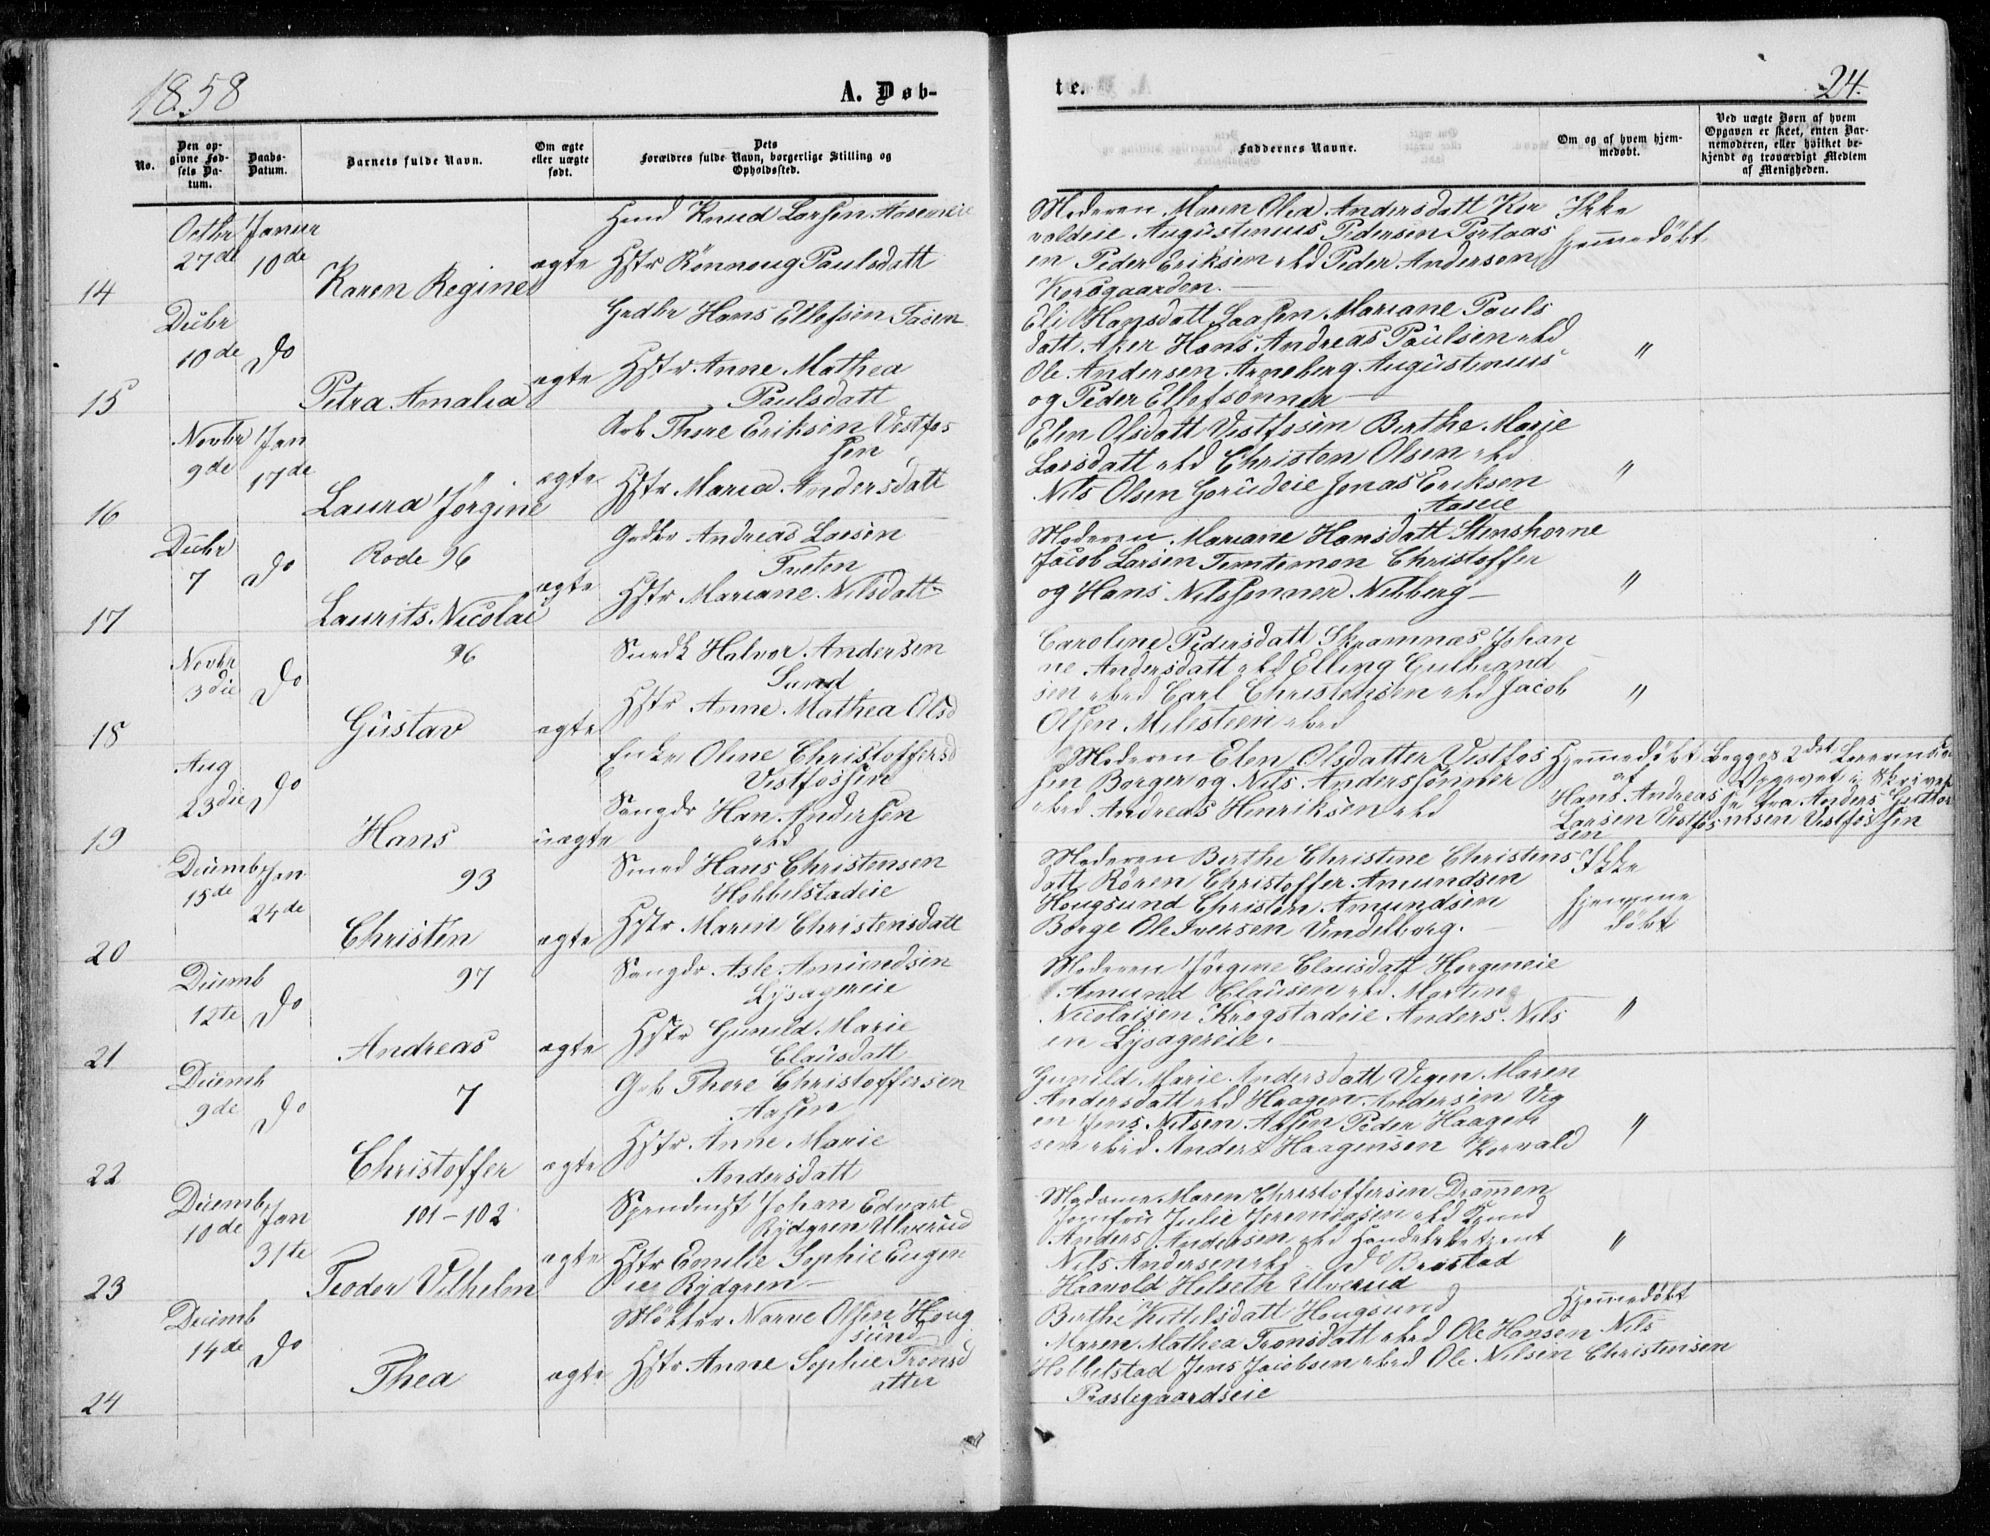 1858
A. Døb-
te.
24.
No.
Den opgivne Fødsels Datum.
Daabs-Datum.
Barnets fulde Navn.
Om ægte eller uægte født.
Dets Forældres fulde Navn, borgerlige Stilling og Opholdssted.
Faddernes Navne.
Om og af hvem hjemmedøbt.
Ved uægte Børn af hvem Opgaven er skeet, enten Barnemoderen, eller hvilket bekjendt og troværdigt Medlem af Menigheden.
14
Octbr 27de
Januar 10de
Karen Regine
ægte
Knud Larsen Aaserieie
Hstr Rönnoug Paulsdatt
Moderen Maren Olea Andersdatt Kor
voldeie Augustinius Pedersen Portaas
en Peder Eriksen Peder Andersen
Korsgaarden.
Ikke
hjemmedöbt
15
Decbr 10de
do
Petra Amalia
ægte
Grdbr Hans Ellefsen
Hstr Anne Mathea
Paulsdatt
Eli Hansdatt Mariane Pauls
datt Aker Hans Andreas Paulsen
Ole Andersen Arneberg Augustinius
og Peder Ellefsönner
"
16
Novbr 9de
Jan 17de
Laura Jörgine
ægte
Arb Thore Eriksen Vestfos
sen
Hstr Maria Andersdatt
Elen Olsdatt Vestfosen Birthe Marie
Larsdatt Christen Olsen
Nils Olsen Gorudeie Jonas Eriksen
Aaseie
"
17
Decbr 7
do
Rode 96
Laurits Nicolai
ægte
Grdbr Andreas Larsen
Tveten
Hstr Mariane Nilsdatt
Moderen Mariane Hansdatt Stenshorne
Jacob Larsen Christoffer
og Hans Nilssønner Nebberg
"
18
Novbr 3die
do
96
Gustav
ægte
Halvor Andersen
Sund
Hstr Anne Mathea Olsd
Caroline Pedersdatt Skramnæs Johan
ne Andersdatt Elling Gulbrand
sen Carl Christensen Jacob
Olsen Milesteen
"
19
Aug 23die
do
Hans
uægte
Enke Oline Christoffersd
Vestfossen
Ungdr Han Andersen
Moderen Elen Olsdatter Vestfos
sen Borger og Nils Anderssönner
Andreas Henriksen
Hjemmedöbt
af
Hans Andreas
Larsen Vestfos
sen
Begges 2det
Opgavet i Skrivel
se fra Anders Guttor
msen Vestfossen
20
Decemb 15de
Jan 24de
93
Christen
ægte
Smed Hans Christensen
Hobbelstadeie
Hstr Maren Christensdatt
Moderen Birthe Christine Christens
datt Rören Christoffer Amundsen
Hougsund Christen Amundsen
Borge Ole Iversen Vindelborg.
Ikke
hjemme
döbt
21
Decemb 12te
do
97
Andreas
ægte
Ungdr Asle Amundsen
Lysagereie
Hstr Gunild Marie
Clausdatt
Moderen Jörgine Clausdatt Horgeneie
Amund Clausen Martin
Nicolaisen Krogstadeie Anders Nils
en Lysagereie.
"
22
Decemb 9de
do
7
Christoffer
ægte
Thore Christoffersen
Aasen
Hstr Anne Marie
Andersdatt
Gunild Marie Andersdatt Vegen Maren
Andersdatt Haagen Andersen Veg
en Jens Nilsen Aasen Peder Haagen
sen Anders Haagensen Korvald
"
23
Decemb 10de
Jan 31te
101-102
Teodor Vilhelm
ægte
Johan Eduart
Rydgren Ulverud
Hstr Emilie Sophie Eugen
ie Rydgren
Madame Maren Christoffersen Drammen
Jomfru Julie Jeremiasen
Anders Andersen
Nils Andersen do Brustad
Haavold Helseth Ulverud
"
24
Decemb 14de
do
Thea
ægte
Möller Narve Olsen Houg
sund
Hstr Anne Sophie Tronsd
atter
Birthe Kittilsdatt Hougsund
Maren Mathea Tronsdatt Ole Hansen Nils
Hobbelstad Jens Jacobsen Ole Nilsen Christensen
Præstegaardseie
Hjemmedöbt